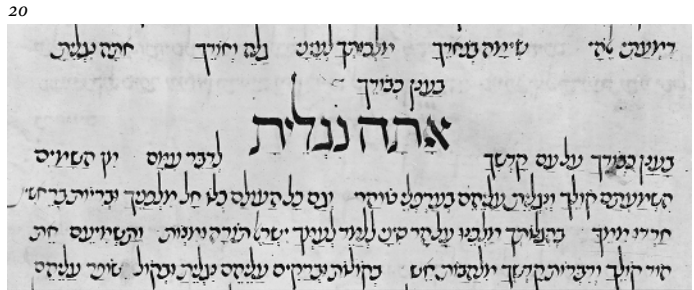 20
דמעתי שימה בנאדך מלכותך גלה אתה נגלית
בענן כבודך
אַתָּה נִגְלֵיתָ
בענן כבודך על עם קדשך לדבר עמם מן השמים
השמעתם קולך ונגלית עליהם בערפלי טוהר גם כל העולם כלו חל מלפניך ובריות בראשי׳
חרדו ממך בהגלותך מלכנו על הר סיני ללמד לעמך ישראל תורה ומצות ותשמיעם את
הוד קולך ודברות קדשך מלהבות אש בקולות וברקים עליהם נגלית ובקול שופר עליהם